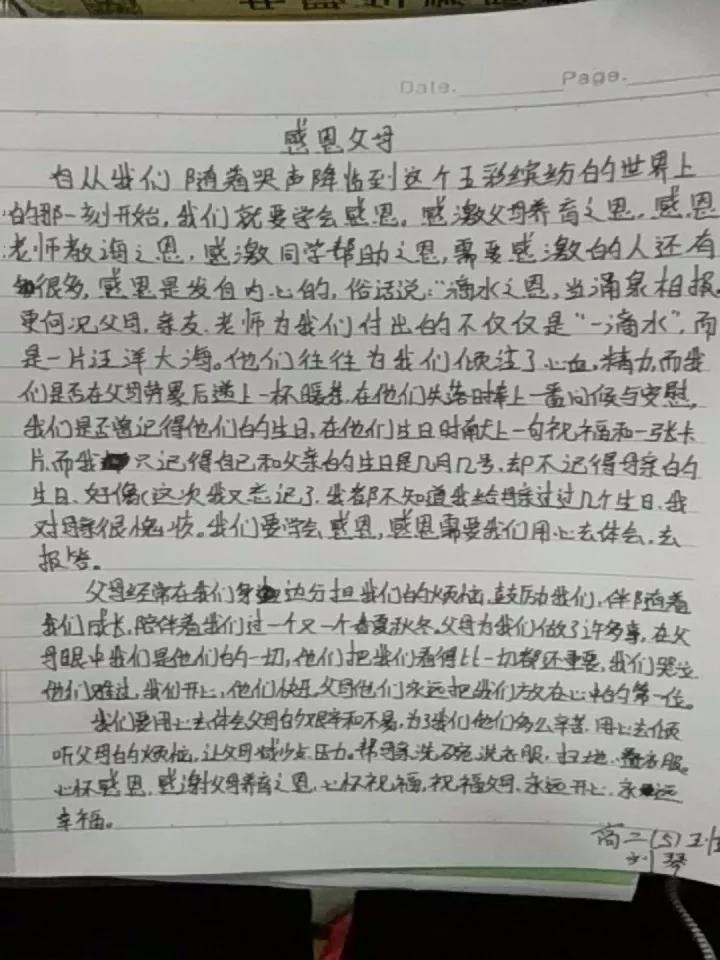 Date. Page.
感恩父母
自从我们随着哭声降临到这个五彩缤纷的世界上
的那一刻开始,我们就要学会感恩。感激父母养育之恩,感恩
老师教诲之恩,感激同学帮助之恩,需要感激的人还有
很多,感恩是发自内心的,俗话说:“滴水之恩,当涌泉相报。
更何况父母,亲友,老师为我们付出的不仅仅是“一滴水”,而
是一片汪洋大海。他们往往为我们倾注了心血,精力,而我
们是否在父母劳累后递上一杯暖茶,在他们失落时奉上一番问候与安慰,
我们是否曾记得他们的生日,在他们生日时献上一句祝福和一张卡
片,而我只记得自己和父亲的生日是几月几号,却不记得母亲的
生日,好像这次我又忘记了,我都不知道我给母亲过过几个生日,我
对母亲很愧疚。我们要学会感恩,感恩需要我们用心去体会,去
报答。
父母经常在我们身边分担我们的烦恼,鼓励我们,伴随着
我们成长,陪伴着我们过一个又一个春夏秋冬。父母为我们做了许多事,在父
母眼中我们是他们的一切,他们把我们看得比一切都还重要,我们哭泣
他们难过,我们开心,他们快乐,父母他们永远把我们放在心中的第一位。
我们要用心去体会父母的艰辛和不易,为了我们他们多么辛苦,用心去倾
听父母的烦恼,让父母减少点压力。帮母亲洗碗,洗衣服,扫地,叠衣服。
心怀感恩,感谢父母养育之恩,心怀祝福,祝福父母,永远开心,永远
幸福。
高二(5)
刘琴